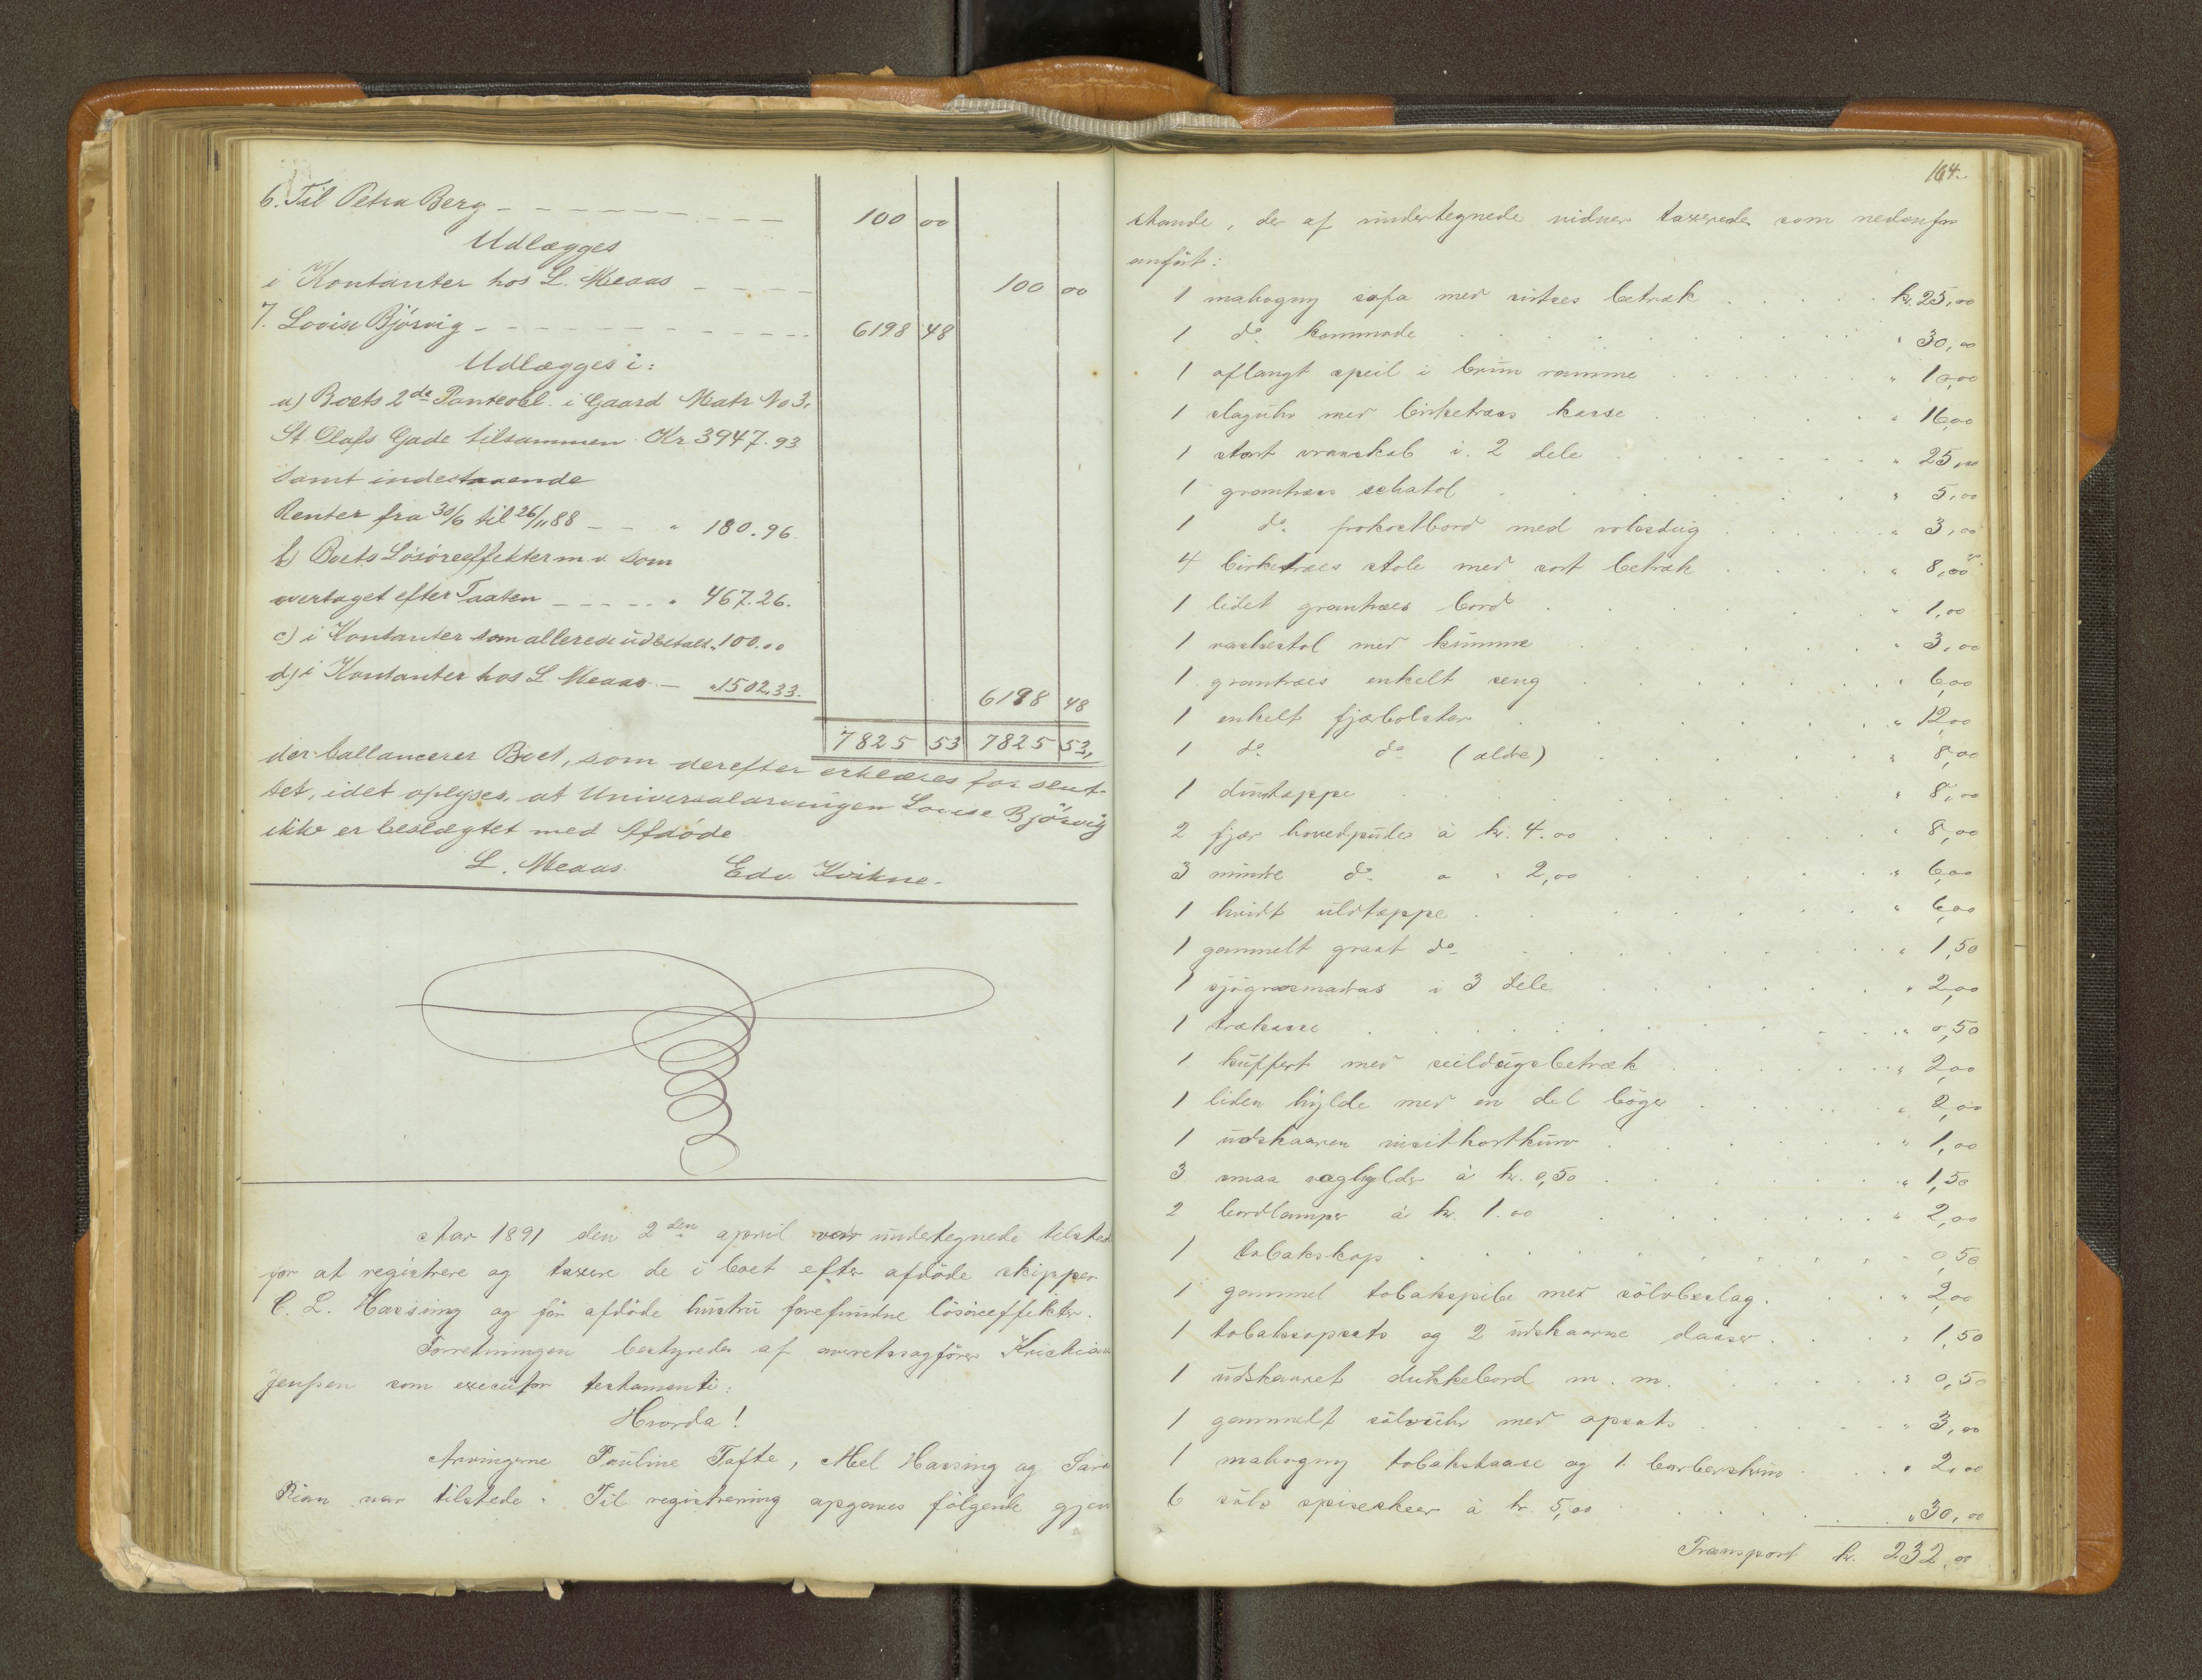 6. Til Petra Berg - - - - - - - - - 100 00
Udlægges
i Kontanter hos L. Meaas - - - - 100 00
7. Lovise Bjórvig - - - - - - - - - - - - 6198 48
Udlægges i:
a) Boets 2de Panteobl. i Gaard Matr No 3,
St Olafs Gade tilsammen Kr. 3947.93
samt indestaaende
Renter fra 30/6 til 26/11 88 - - " 180.96.
b) Boets Lósóreeffekter m. v. som
overtaget efter Taxten - - - - - " 467.26.
c) i Kontanter som allerede udbetalt " 100.00
d) i Kontanter hos L Meaas - " 1502.33. 6198 48
7825 53 7825 53,
der ballancerer Boet, som derefter erklæres for slut-
tet, idet oplyses, at Universalarvingen Lovise Bjórvig
ikke er beslægtet med Afdóde
L. Meaas Edv Kvikne.
Aar 1891 den 2den april var undertegnede tilsted
for at registrere og taxere de i boet efter afdöde skipper
C. L. Hassing og för afdöde hustru forefundne lösöreeffekter.
Forretningen bestyredes af overretssagförer Kristian
Jenssen som executor testamenti:
Hvorda!
Arvingerne Pauline Tafte, Abel Hassing og
Rian var tilstede. Til registrering opgaves fölgende gjen
164.
stande, der af undertegnede vidner taxeredes som nedenfor
anfört:
1 mahogny sofa med sirtses betræk . . . . . kr. 25,00
1 do. kommode . . . . . . . . " 30,00
1 aflangt speil i brun ramme . . . . . . " 10,00
1 slaguhr med birketræs kasse . . . . . " 16,00
1 stort vraaskab i 2 dele . . . . . . " 25,00
1 grantræs schatol . . . . . . . " 5,00
1 do. frokostbord med voksdug . . . . . " 3,00
4 birketræs stole med sort betræk . . . . " 8,00
1 lidet grantræs bord . . . . . . . " 1,00
1 vaskestol med kumme . . . . . . " 3,00
1 grantræs enkelt seng . . . . . . " 6,00
1 enkelt fjærbolster . . . . . . . " 12,00
1 do. do (ældre) . . . . . . " 8,00
1 duntæppe . . . . . . . . " 8,00
2 fjær hovedpuder à kr. 4.00 . . . . . . " 8,00
3 mindre do. a " 2,00 . . . . . " 6,00
1 hvidt uldtæppe . . . . . . . " 6,00
1 gammelt graat do . . . . . . . " 1,50
1 sjögræsmadras i 3 dele . . . . . . " 2,00
1 trækasse . . . . . . . . . " 0,50
1 kuffert med seildugsbetræk . . . . . . " 2,00
1 liden hylde med en del böger . . . . . " 2,00
1 udskaaren visitkortkurv . . . . . . " 1,00
3 smaa væghylder à kr. 0,50 . . . . . . " 1,50
2 bordlamper à kr. 1.00 . . . . . . " 2,00
1 tobakskop . . . . . . . . . 0,50
1 gammel tobakspibe med sölvbeslag . . . " 2,00
1 tobaksopsats og 2 udskaarne daaser . . . " 1,50
1 udskaaret dukkebord m. m. . . . . . " 0,50
1 gammelt sölvuhr med opsats . . . . . " 3,00
1 mahogny tobakskasse og 1 barberskrin . . . " 2,00
6 sölv spiseskeer à kr. 5,00 . . . . . . " 30,00
Transport kr. 232,00